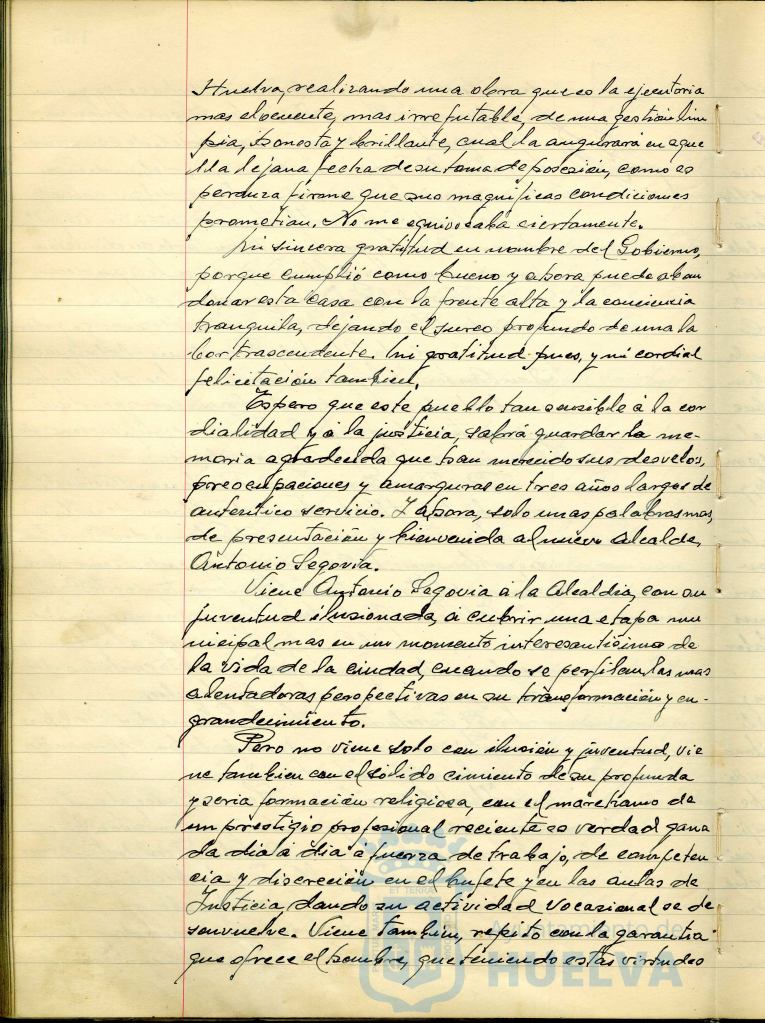 Huelva, realizando una obra que es la ejecutoria
mas elocuente, mas irrefutable, de una gestión lim
pia, honesta y brillante, cual la augurara en aque
lla lejana fecha de su toma de posesión, como es
peranza firme que sus magnificas condiciones
prometian. No me equivocaba ciertamente.
Mi sincera gratitud en nombre del Gobierno,
porque cumplió como bueno y ahora puede aban
donar esta casa con la frente alta y la conciencia
tranquila, dejando el surco profundo de una la
bor trascendente. Mi gratitud pues, y mi cordial
felicitación tambien.
Espero que este pueblo tan sensible á la cor
dialidad y á la justicia, sabrá guardar la me-
moria agradecida que han merecido sus desvelos,
preocupaciones y amarguras en tres años largos de
autentico servicio. Y ahora, solo unas palabras mas,
de presentación y bienvenida al nuevo Alcalde,
Antonio Segovia.
Viene Antonio Segovia á la Alcaldia, con su
juventud ilusionada, á cubrir una etapa mu
nicipal mas en un momento interesantísimo de
la vida de la ciudad, cuando se perfilan las mas
alentadoras perspectivas en su transformación y en-
grandecimiento.
Pero no viene solo con ilusión y juventud, vie
ne tambien con el sólido cimiento de su profunda
y seria formación religiosa, con el marchamo de
un prestigio profesional reciente es verdad gana
da dia á dia a fuerza de trabajo, de competen
cia y discreción en el bufete y en las aulas de
Justicia, donde su actividad vocasional se de
senvuelve. Viene tambien, repito con la garantia
que ofrece el hombre, que teniendo estas virtudes
Ayuntamiento de
HUELVA